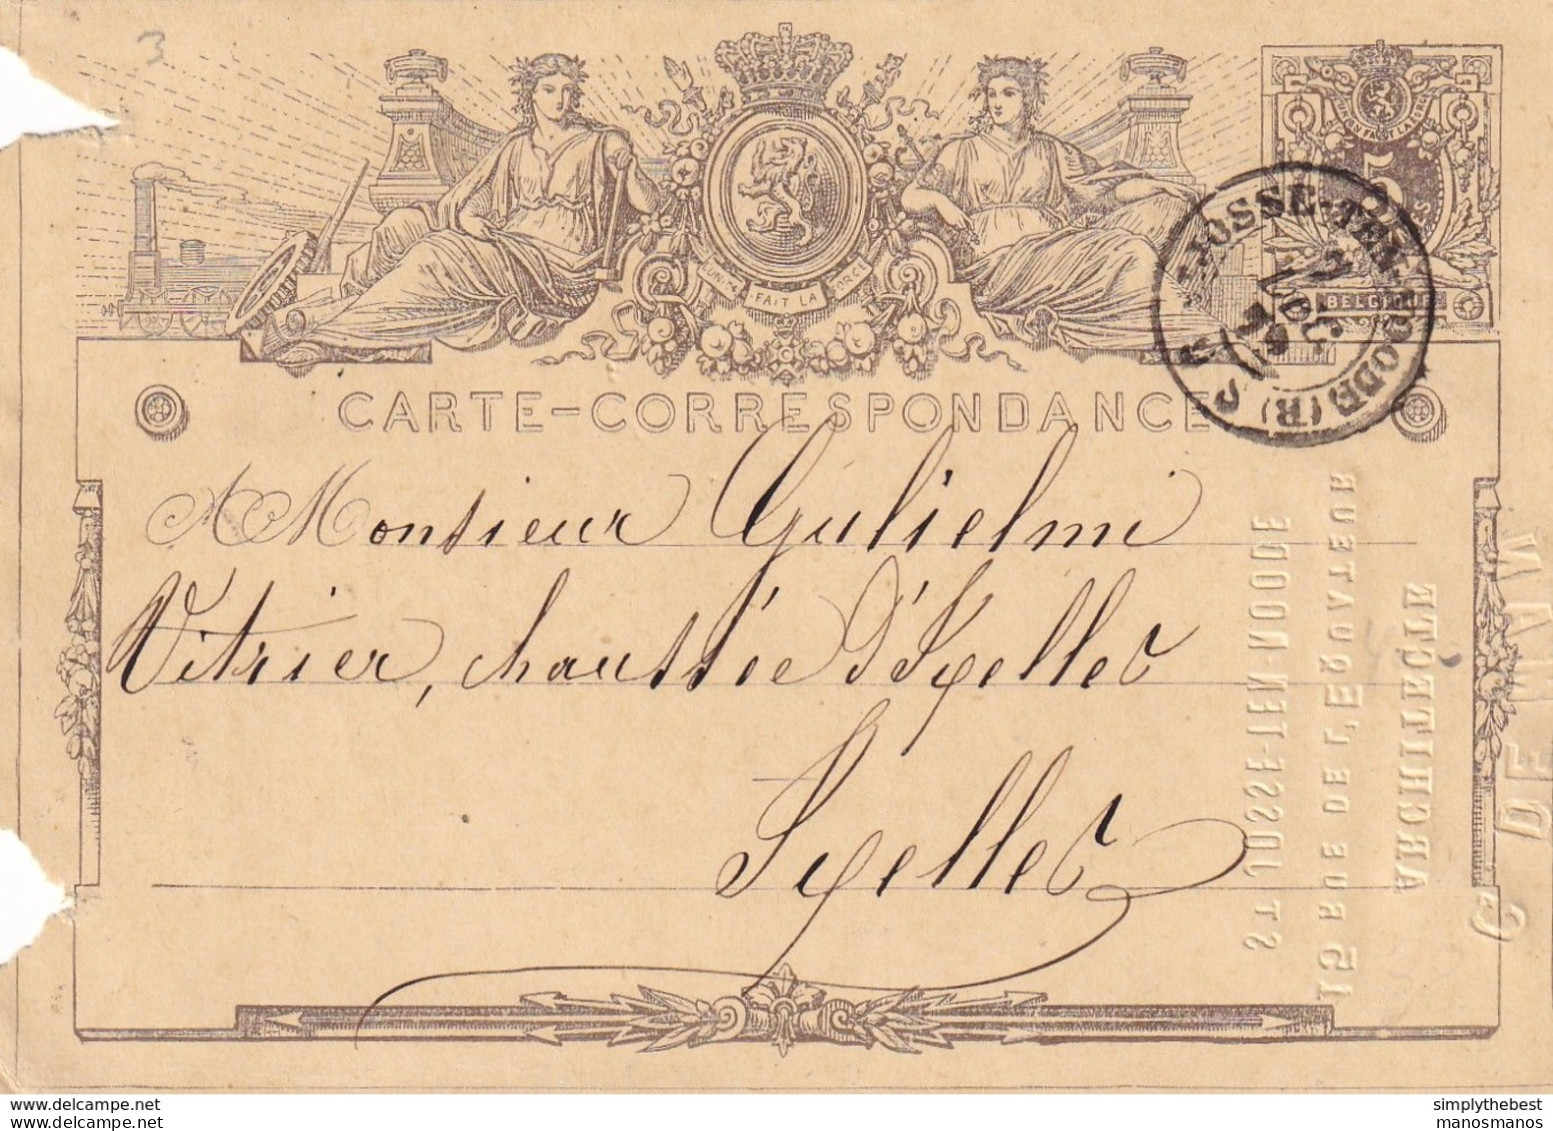 3
L'UNION FAIT LA FORCE
5
BELGIQUE
FAIT LA
ST JOSSE-TEN-NOODE (R)
CARTE-CORRESPONDANCE
A Monsieur Gulielmi
Vitrier, chaussée d'Ixelles
Ixelles
G DE MAN
ARCHITECTE
15 RUE DE L'EQUATEUR
STS JOSSE-TEN-NOODE
delcampe.net
simplythebest
manosmanos